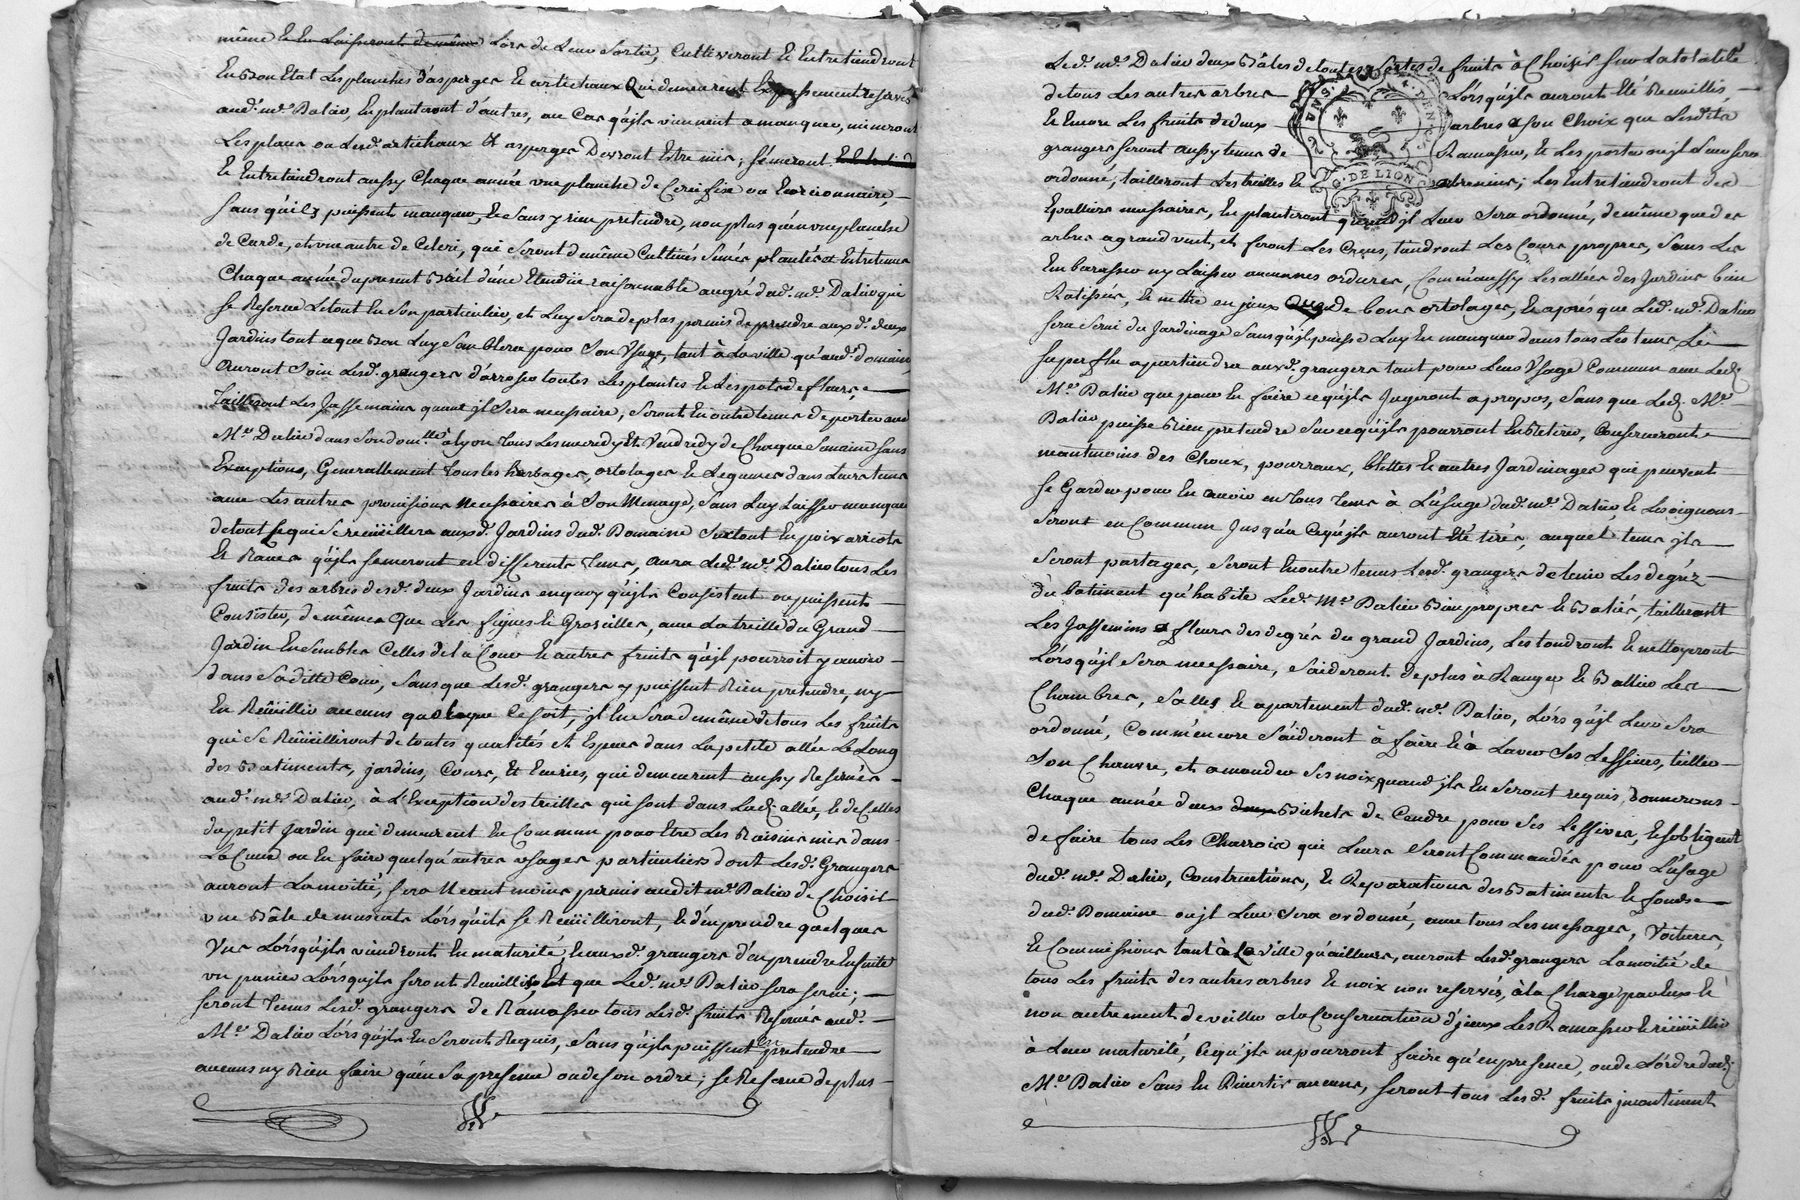 même et en Laisseront de même Lors de Leur Sortie, Cultiveront et Entretiendront
En Bon Etat Les planches d'asperges et artichaux Qui demeurent Expressement reservés
aud.t m.r Daliev, En planteront d'autres, au Cas qu'ils viennent a manquer, mineront
Les places ou Lesd. artichaux Et asperges Devront Estre mis, Sémeront
Et Entretiendront aussy Chaque année une planche de Cerifix ou Escorsonnaire,
Sans qu'ilz puissent manquer, Et Sans y rien pretendre, non plus qu'en une planche
de Carde, et une autre de Celeri, qui Seront de même Cultivés Semés plantés et Entretenus
Chaque année du present Bail d'une Etendüe raisonnable au gré dud. m.r Daliev qui
Se Reserve Letout En Son particulier, et Luy Sera de plus permis de prendre aux d. deux
Jardins tout ce que Bon Luy Semblera pour Son Usage, tant à La ville qu'aud. domaine,
Auront Soin Lesd. grangers d'arroser toutes Les plantes Et Les pots de fleurs,
Tailleront Les Jassemains quand jl Sera nessaire, Seront En outre tenus de porter aud
M.r Daliev dans Son dom.lle a lyon tous Les mecredy Et Vendredy de Chaque Semaine Sans
Exceptions, Generallement tous les herbages, ortolages Et Legumes dans Leurs tems
avec Les autres provisions Nessaires à Son Menage, Sans Luy Laisser manquer
de tout Ce qui Se reüilliera auxd. Jardins dud. Domaine Surtout En poix aricots
Et Raves qu'ils Semeront en differents Tems, aura Led. m.r Daliev tous Les
fruits des arbres desd. deux Jardins en quoy qu'ils Consistent ou puissent
Consister, de même Que Les figues Et Groseilles, avec La treille du Grand
Jardin Ensembles Celles de La Cour Et autres fruits qu'il pourroit y avoir
dans Sa ditte Cour, Sans que Lesd. grangers y puissent Rien pretendre, ny
En Reüillir aucuns quelque Ce soit, jl En Sera de même de tous Les fruits
qui Se Reüilliront de toutes qualités et Especes dans La petite allée Le Long
des Batiments, jardins, Cours, Et Ecuries, qui demeurent aussy Reservés
aud. m.r Daliev, à L'Exception des treilles qui sont dans Lad. allée, et de Celles
du petit Jardin qui demeurent En Commun pour Etre Les Raisins mis dans
La Cuve ou En faire quelqu'autres usages particuliers dont Lesd. Grangers
auront La moitié, Sera Neantmoins permis audit m.r Daliev de Choisir
une Bâte de muscats Lorsqu'ils Se Reüilliront, et d'en prendre quelques
Uns Lorsqu'ils viendront En maturité, et auxd. grangers d'en prendre Ensuite
un panier Lorsqu'ils Seront Reuillis, Et que Led. m.r Daliev Sera Servi;
Seront Tenus Lesd. grangers de Ramasser tous Lesd. fruits Reservés aud.
M.r Daliev Lorsqu'ils En Seront Requis, Sans qu'ils puissent en pretendre
aucuns ny Rien faire qu'en Sa presence ou de Son ordre; Se Reserve de plus
Led. m.r Daliev deux Bâtes de toutes Sortes de fruits à Choisir Sur La totalité
de tous Les autres arbres Lorsqu'ils auront Eté Reuillis,
Et Encore Les fruits de deux arbres a Son Choix que Lesdits
grangers Seront aussy tenus de Ramasser, Et Les porter ou jl Leur Sera
ordonné, tailleront Les treilles Et Les Entretiendront des
Epalliers nessaires, En planteront quand jl Leur Sera ordonné, de même que des
arbres a grand vent, et feront Les Creus, tiendront Les Cours propres, Sans Les
Embarasser ny Laisser aucunes ordures, Comm'aussy Les allées des Jardins bien
Ratissées, Et mettre en jceux De bons ortolages, Et après que Led. m.r Daliev
Sera Servi du Jardinage Sans qu'il puisse Luy En manquer dans tous Les tems, Le
Superflu apartiendra auxd. grangers tant pour Leur Usage Commun avec Led.
M.r Daliev que pour En faire ce qu'ils Jugeront a propos, Sans que Led. M.r
Daliev puisse Rien pretendre Sur ce qu'ils pourront En Retirer, Conserveront
neantmoins des Choux, pourraux, blettes Et autres Jardinages que peuvent
Se Garder pour En avoir en tous tems à L'usage dud. m.r Daliev, Et Les oignons
Seront en Commun Jusqu'a Cequ'ils auront Eté tirés, auquel tems jls
Seront partagés, Seront En outre tenus Lesd. grangers de tenir Les degréz
du batiment qu'habite Led. M.r Daliev Bien propres Et Baliés, tailleront
Les Jassemins et fleurs des degrés du grand Jardins, Les tondront Et nettoyeront
Lorsqu'il Sera nessaire, S'aideront de plus à Ranger Et Ballier Les
Chambres, Salles Et apartement dud. m.r Daliev, Lors qu'il Leur Sera
ordonné, Comm'encore S'aideront à faire Et à Laver Ses Lessives, teiller
Son Chanvre, et amonder Ses noix quand jls En Seront requis, Donnerons
Chaque année deux Bichets de Cendre pour Ses Lessives, Et S'obligent
de faire tous Les Charrois qui Leurs Seront Commandés pour L'usage
dud. m.r Daliev, Constructions, Et Reparations des Batiments Et fonds
dud. Domaine ou jl Leur Sera ordonné, avec tous Les messages, Voitures,
Et Commissions tant à La ville qu'ailleurs, auront Lesd. grangers La moitié de
tous Les fruits des autres arbres Et noix non reservés, à La Charge par Eux Et
non autrement de veiller a La Conservation d'jceux Les Ramasser Et reüillir
à Leur maturité, Cequ'ils ne pourront faire qu'en presence, ou de L'ordre dud.
M.r Daliev Sans En Divertir aucuns, Seront tous Lesd. fruits jncontinent
G. DE LION